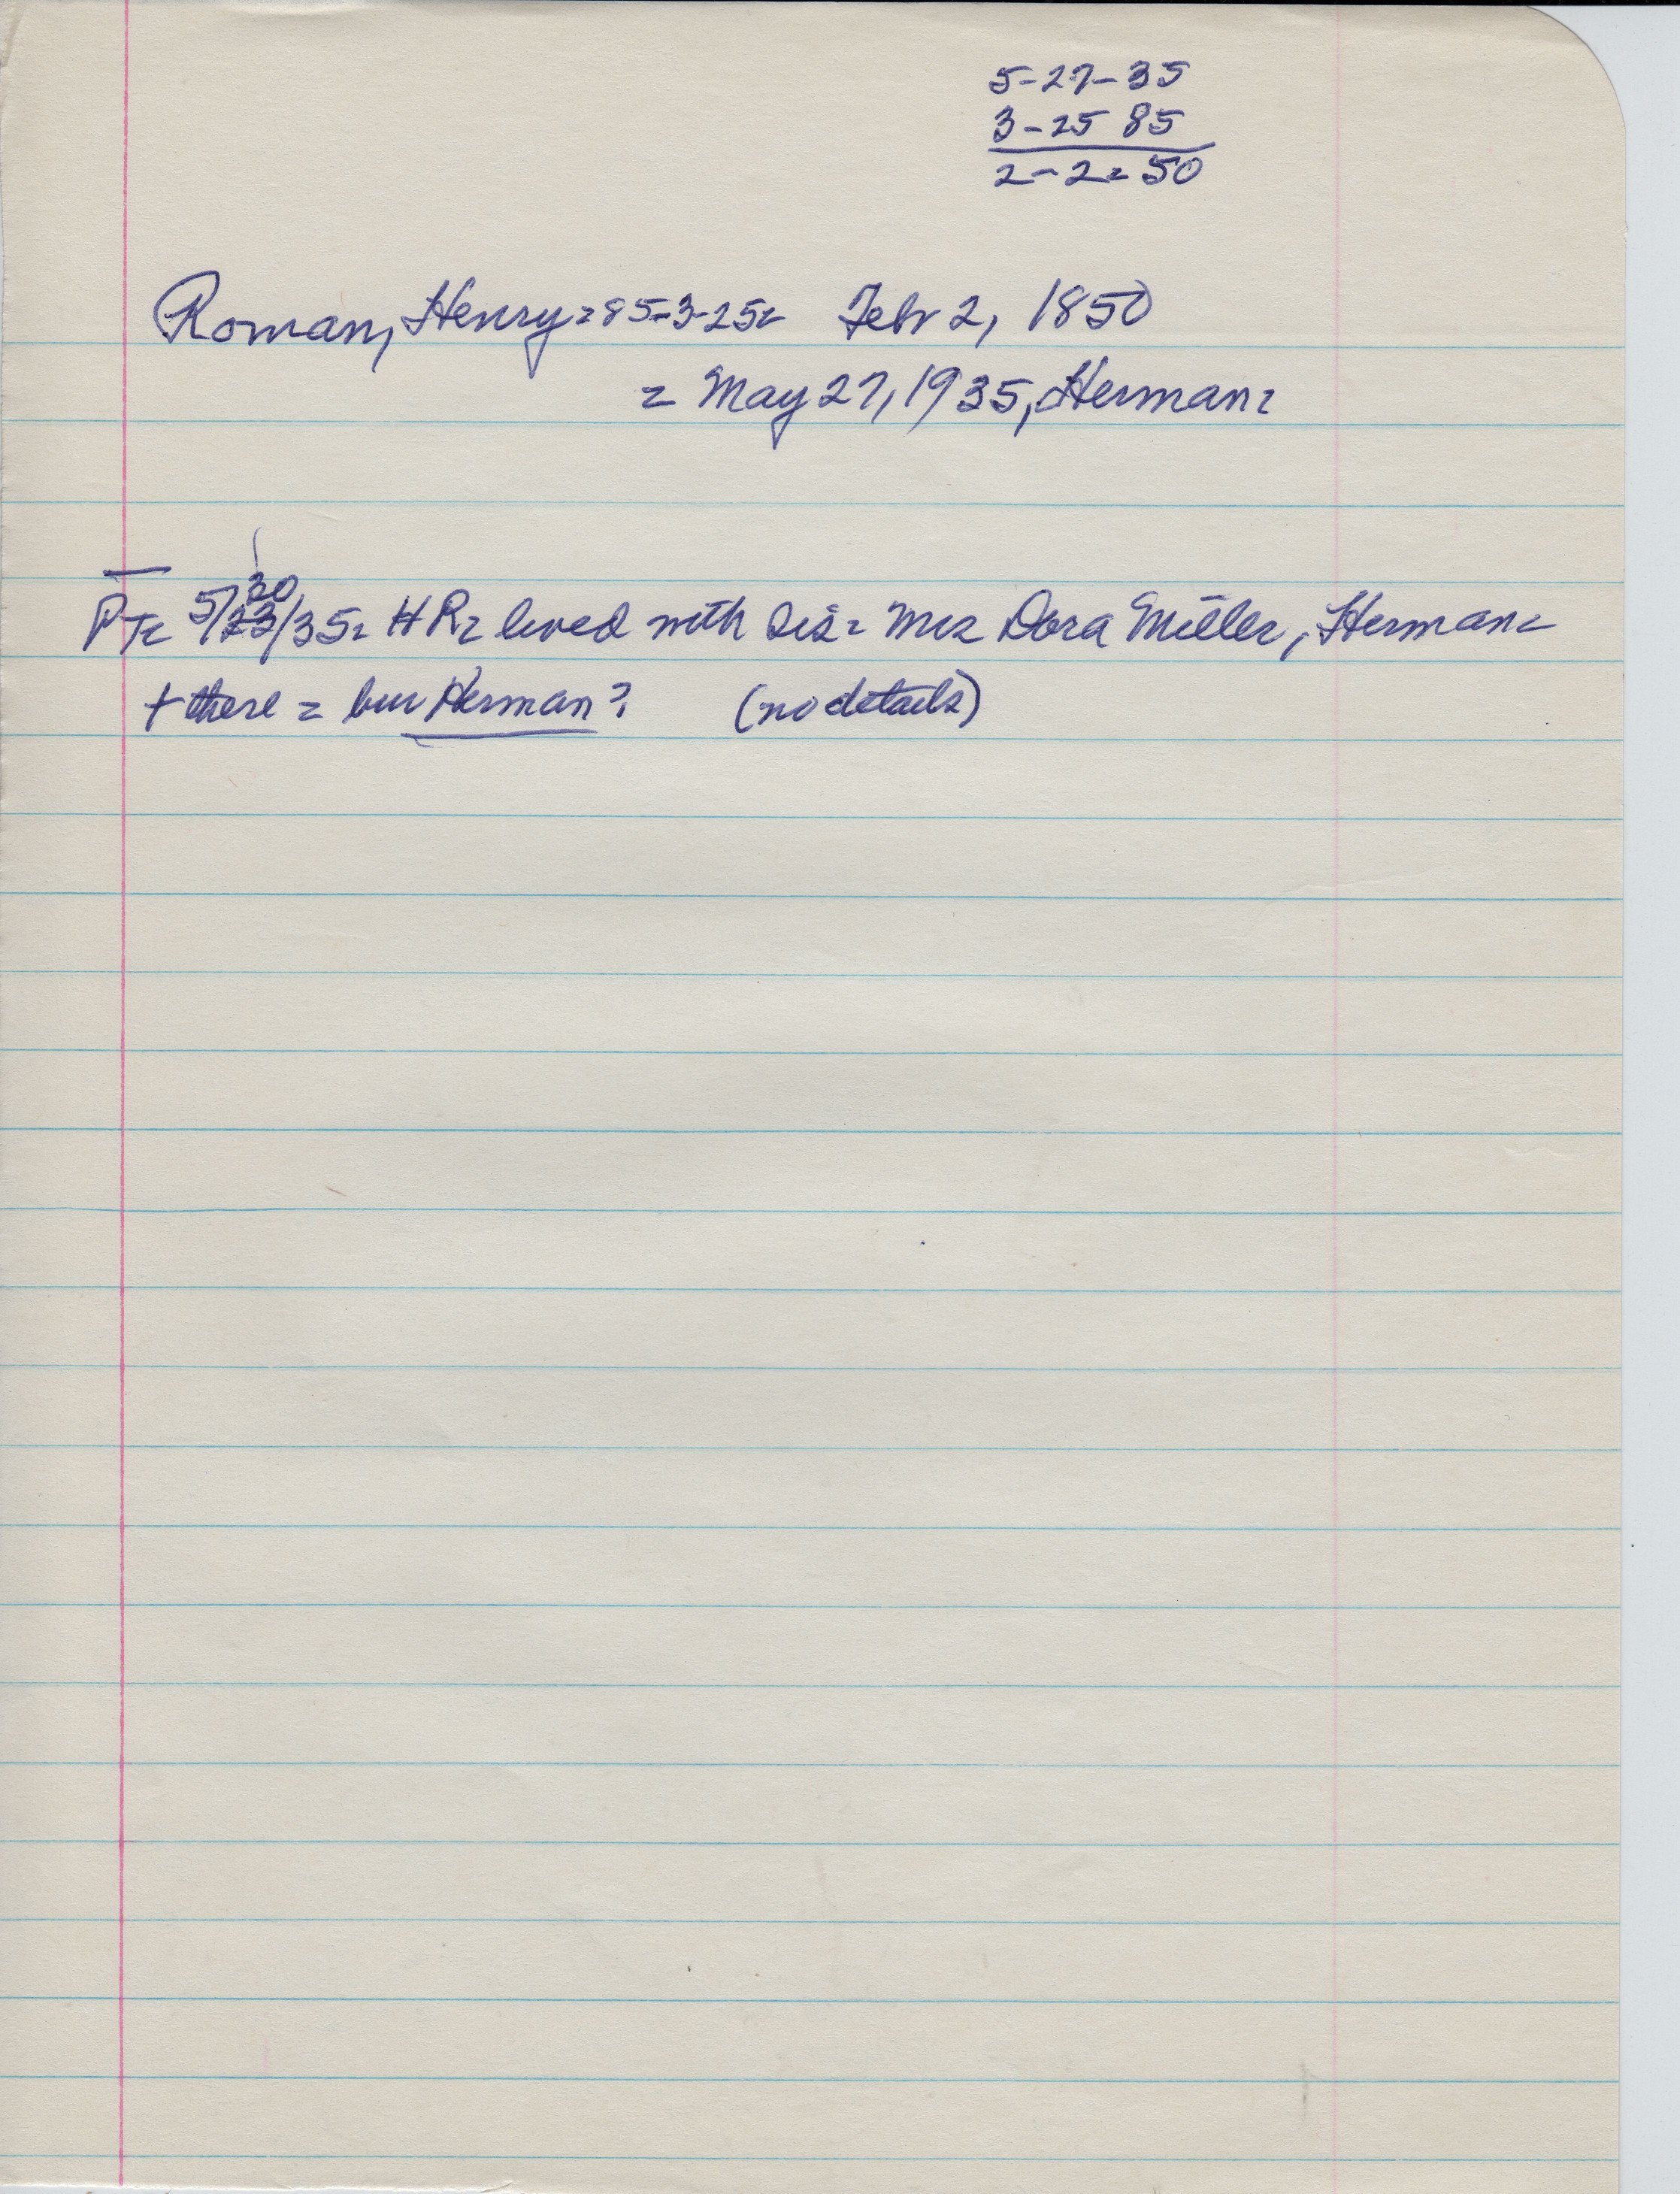 5-27-35
3-25 85
2-2= 50
Roman, Henry=85-3-25= Febr 2, 1850
= May 27, 1935, Herman=
30
PT= 5/23/35= HR= lived with Sis= Mrs Dora Miller, Herman=
+ there = bur Herman? (no details)